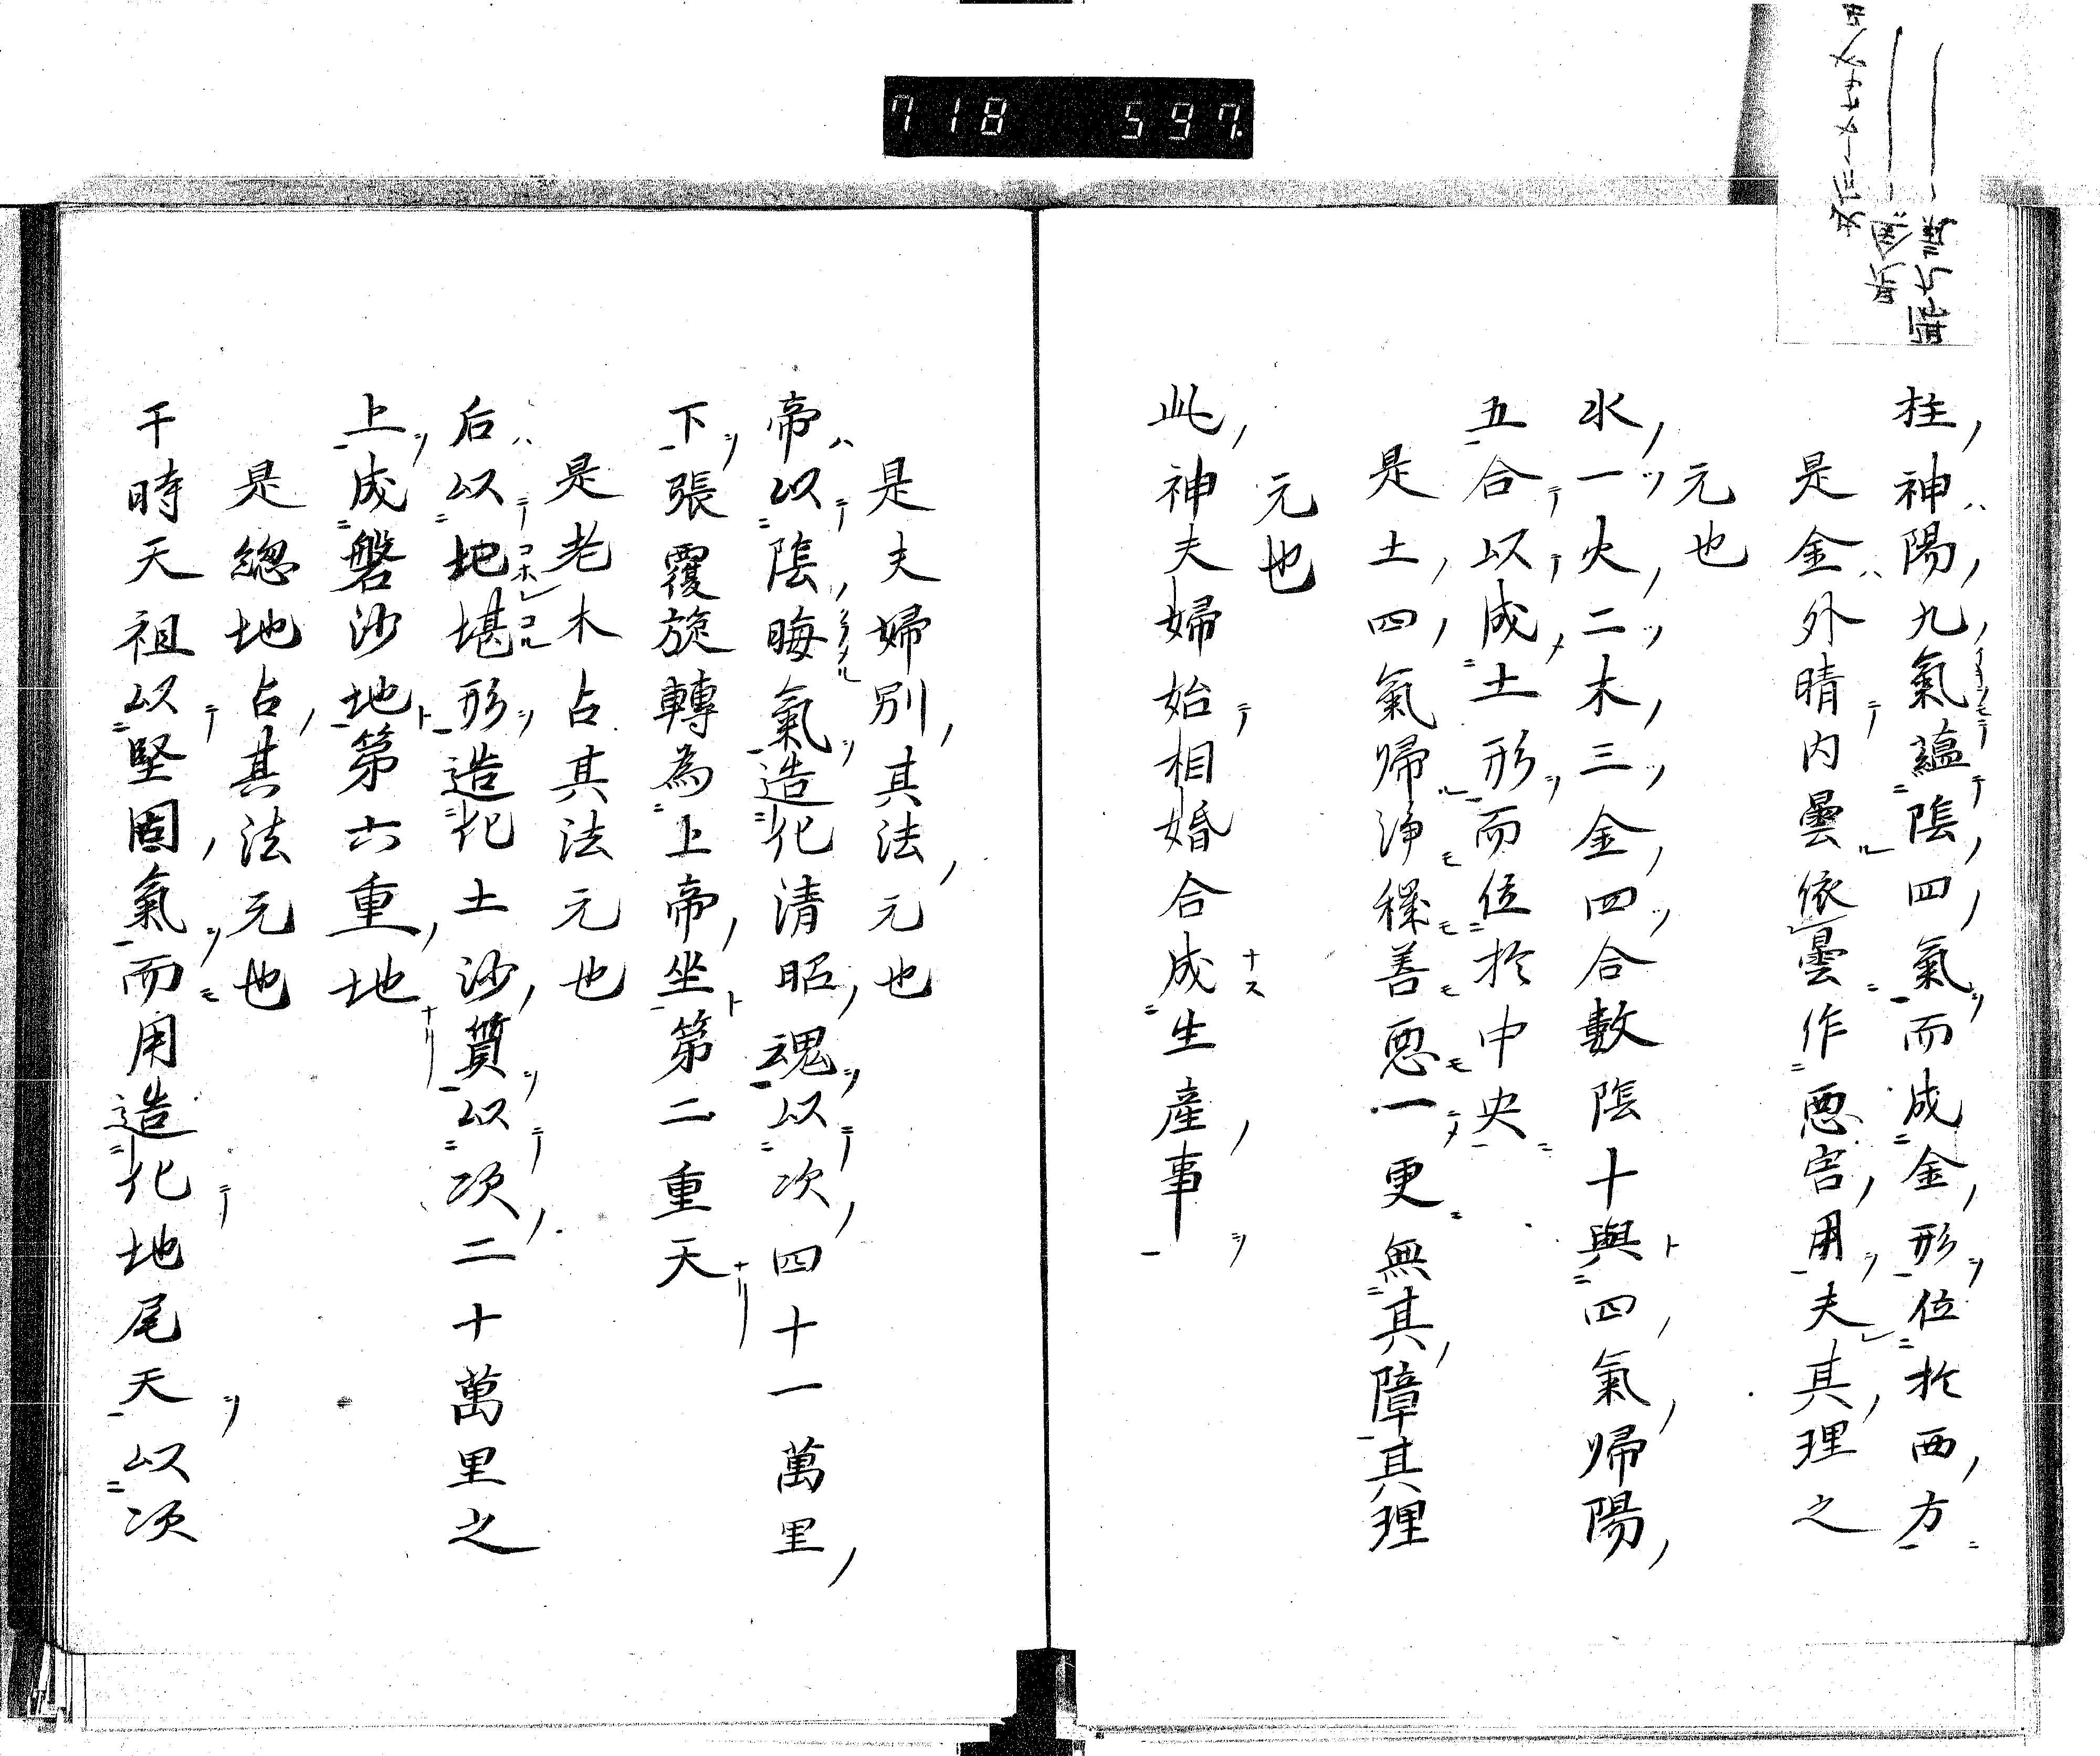 718 597.
柱神陽九氣蘊陰四氣而成金形位於西方
是金外晴内曇依曇作悪害用夫其理之
元也
水一火二木三金四合數陰十與四氣歸陽
五合以成土形而位於中央
是土四氣歸淨穢善悪一更無其障其理
元也
此神夫婦始相婚合成生產事
是夫婦別其法元也
帝以陰晦氣造化清昭魂以次四十一萬里
下張覆旋轉為上帝坐第二重天
是老木占其法元也
后以地堪形造化土沙質以次二十萬里之
上成磐沙地第六重地
是總地占其法元也
于時天祖以堅固氣而用造化地尾天以次